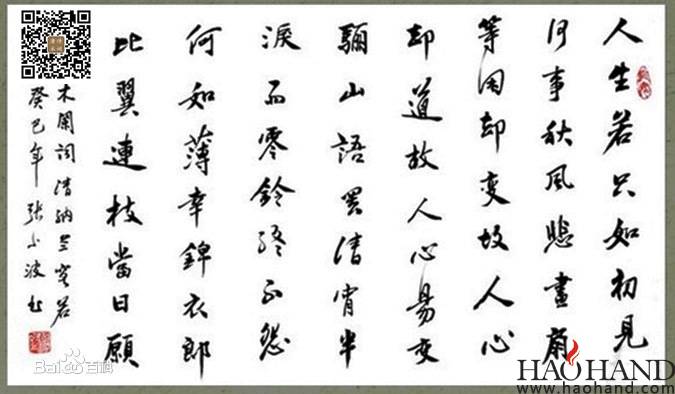 人生若只如初見
何事秋风悲畫扇
等闲却变故人心
却道故人心易变
驪山語罢清宵半
淚雨零鈴終不怨
何如薄幸錦衣郎
比翼連枝當日願
木蘭詞清納兰容若
癸巳年張小波书
Bai百科
HAOHAND
www.haohand.com